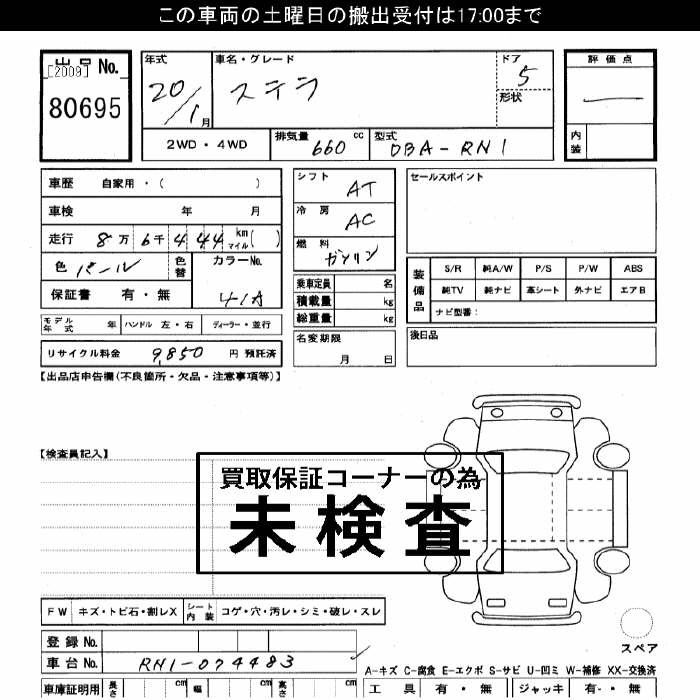 この車両の土曜日の搬出受付は17:00まで
出品 No.
[2009]
80695
年式 20/1月
車名・グレード ステラ
ドア 5
形状
評価点
内装
2WD・4WD
排気量 660 cc
型式 DBA-RN1
車歴 自家用・( )
車検 年 月
走行 8万 6千 444 km マイル( )
色 パール 色替
カラーNo. 41A
保証書 有・無
モデル年式 年 ハンドル 左・右 ディーラー・並行
リサイクル料金 9,850 円 預託済
シフト AT
冷房 AC
燃料 ガソリン
乗車定員 名
積載量 kg
総重量 kg
名変期限 月 日
セールスポイント
装備品
S/R 純A/W P/S P/W ABS
純TV 純ナビ 革シート 外ナビ エアB
ナビ型番:
後日品
【出品店申告欄(不良箇所・欠品・注意事項等)】
【検査員記入】
買取保証コーナーの為
未検査
FW キズ・トビ石・割レX シート内装 コゲ・穴・汚レ・シミ・破レ・スレ
登録No.
車台No. RN1-074483
スペア
A-キズ C-腐食 E-エクボ S-サビ U-凹ミ W-補修 XX-交換済
車庫証明用 長さ cm 幅 cm 高さ cm
工具 有・無 ジャッキ 有・無